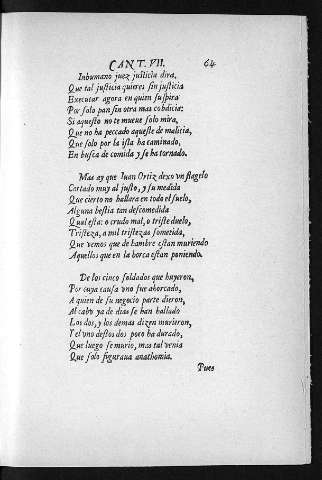 CANT. VII. 64
Inhumano juez justicia dira,
Que tal justicia quieres sin justicia
Executar agora en quien suspira
Por solo pan sin otra mas cobdicia:
Si aquesto no te mueve solo mira,
Que no ha peccado aqueste de malicia,
Que solo por la isla ha caminado,
En busca de comida y se ha tornado.
Mas ay que Iuan Ortiz dexo vn flagelo
Cortado muy al justo, y su medida
Que cierto no hallara en todo el suelo,
Alguna bestia tan descomedida
Qual esta: o crudo mal, o triste duelo,
Tristeza, a mil tristezas sometida,
Que vemos que de hambre estan muriendo
Aquellos que en la horca estan poniendo.
De los cinco soldados que huyeron,
Por cuya causa vno fue ahorcado,
A quien de su negocio parte dieron,
Al cabo ya de dias se han hallado
Los dos, y los demas dizen murieron,
Y el vno destos dos poco ha durado,
Que luego se murio, mas tal venia
Que solo figuraua anathomia.
Pues